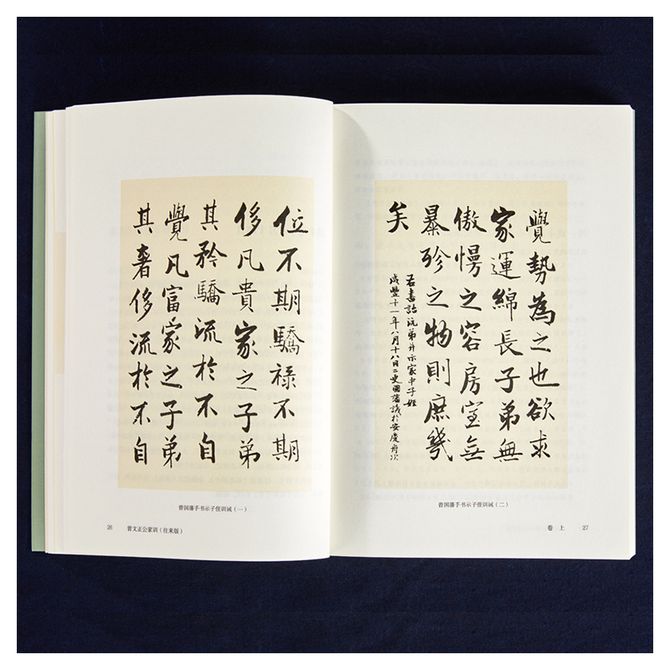 位不期驕祿不期
侈凡貴家之子弟
其矜驕流於不自
覺凡富家之子弟
其奢侈流於不自
曾国藩手书示子侄训诫（一）
26 曾文正公家训（往来版）
覺勢為之也欲求
家運綿長子弟無
傲慢之容房室無
暴殄之物則庶幾
矣
右書誥沅弟并示家中子姪
咸豐十一年八月十八日二更國藩識於安慶舟次
曾国藩手书示子侄训诫（二）
卷 上 27